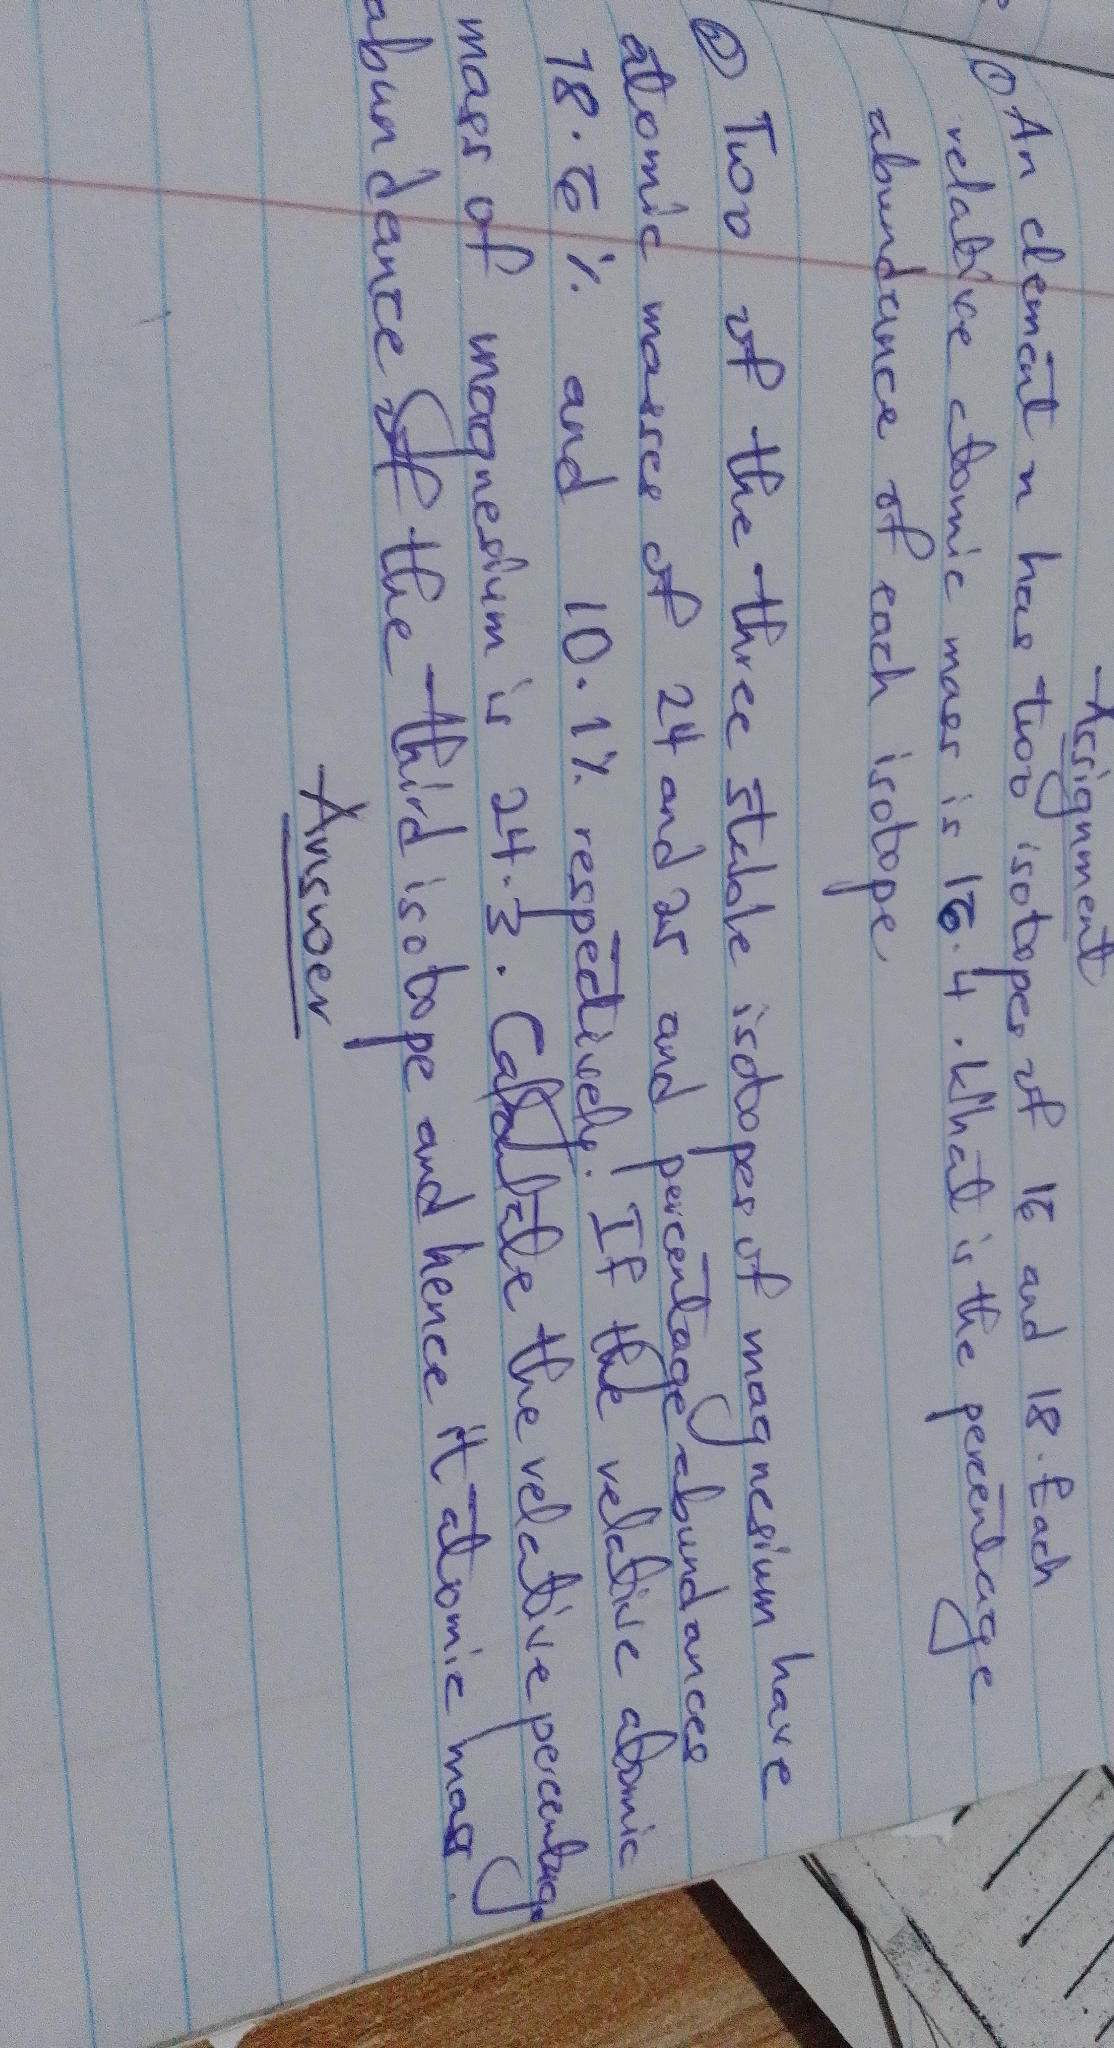 Assignment
① An element n has two isotopes of 16 and 18. Each
relative atomic mass is 16.4. What is the percentage
abundance of each isotope
② Two of the three stable isotopes of magnesium have
atomic masses of 24 and 25 and percentage abundances
78.6% and 10.1% respectively. If the relative atomic
mass of magnesium is 24.3. Calculate the relative percentage
abundance of the third isotope and hence it atomic mass.
Answer